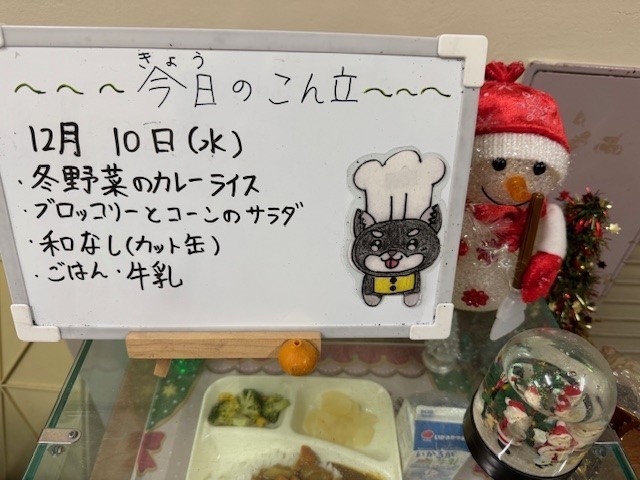 きょう
～～～今日のこん立～～～
12月 10日(水)
・冬野菜のカレーライス
・ブロッコリーとコーンのサラダ
・和なし(カット缶)
・ごはん・牛乳